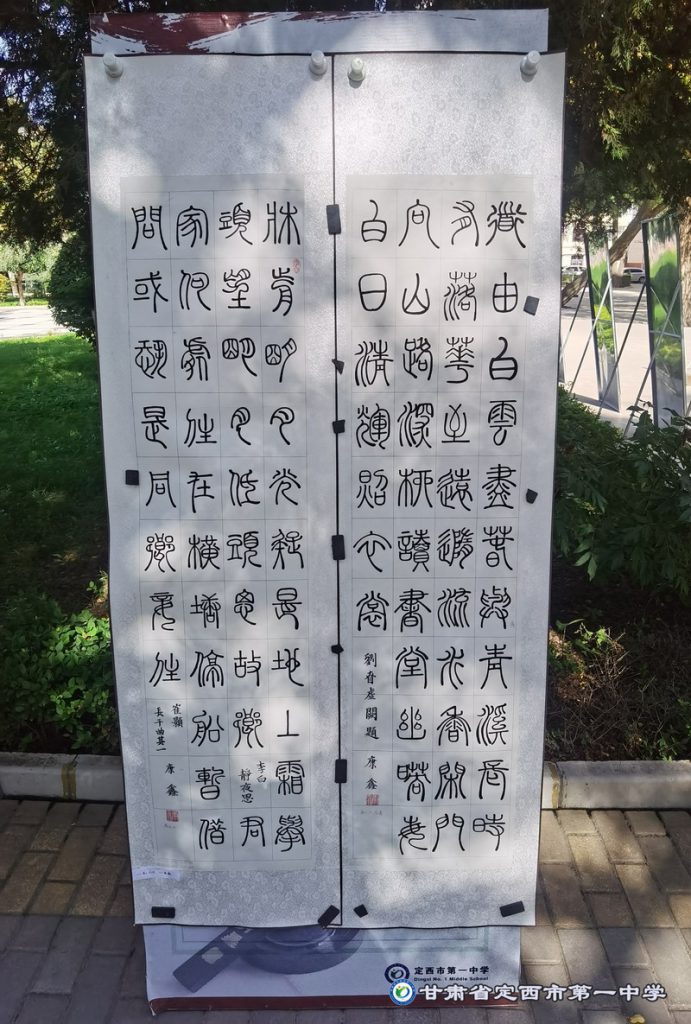 道由白雲盡春與青溪長時
有落華至遠隨流水香閑門
向山路深柳讀書堂幽映每
白日清輝照衣裳
劉昚虛 闕題 康鑫
牀前明月光疑是地上霜舉
頭望明月低頭思故鄉
李白
靜夜思
君
家何處住在橫塘停船暫借
問或恐是同鄉妾住
崔顥
長干曲其一
康鑫
定西市第一中学
Dingxi No. 1 Middle School
甘肃省定西市第一中学